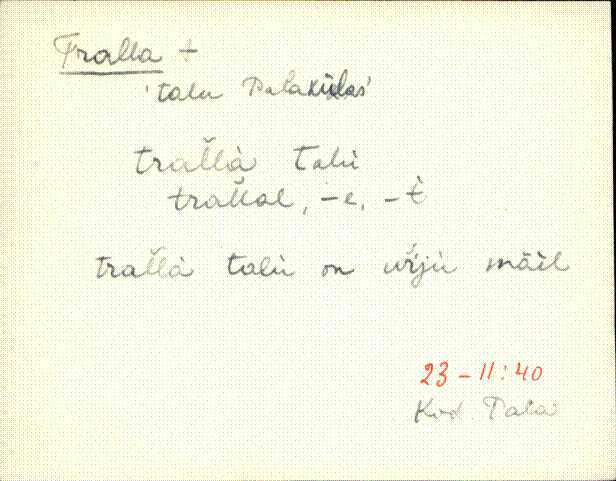 Tralla +
'talu Palakülas'
tral̆l̆à talù
tral̆l̆al, -e, -t̀
tral̆l̆à talù on urjù mäel
23-11:40
Kod. Pala